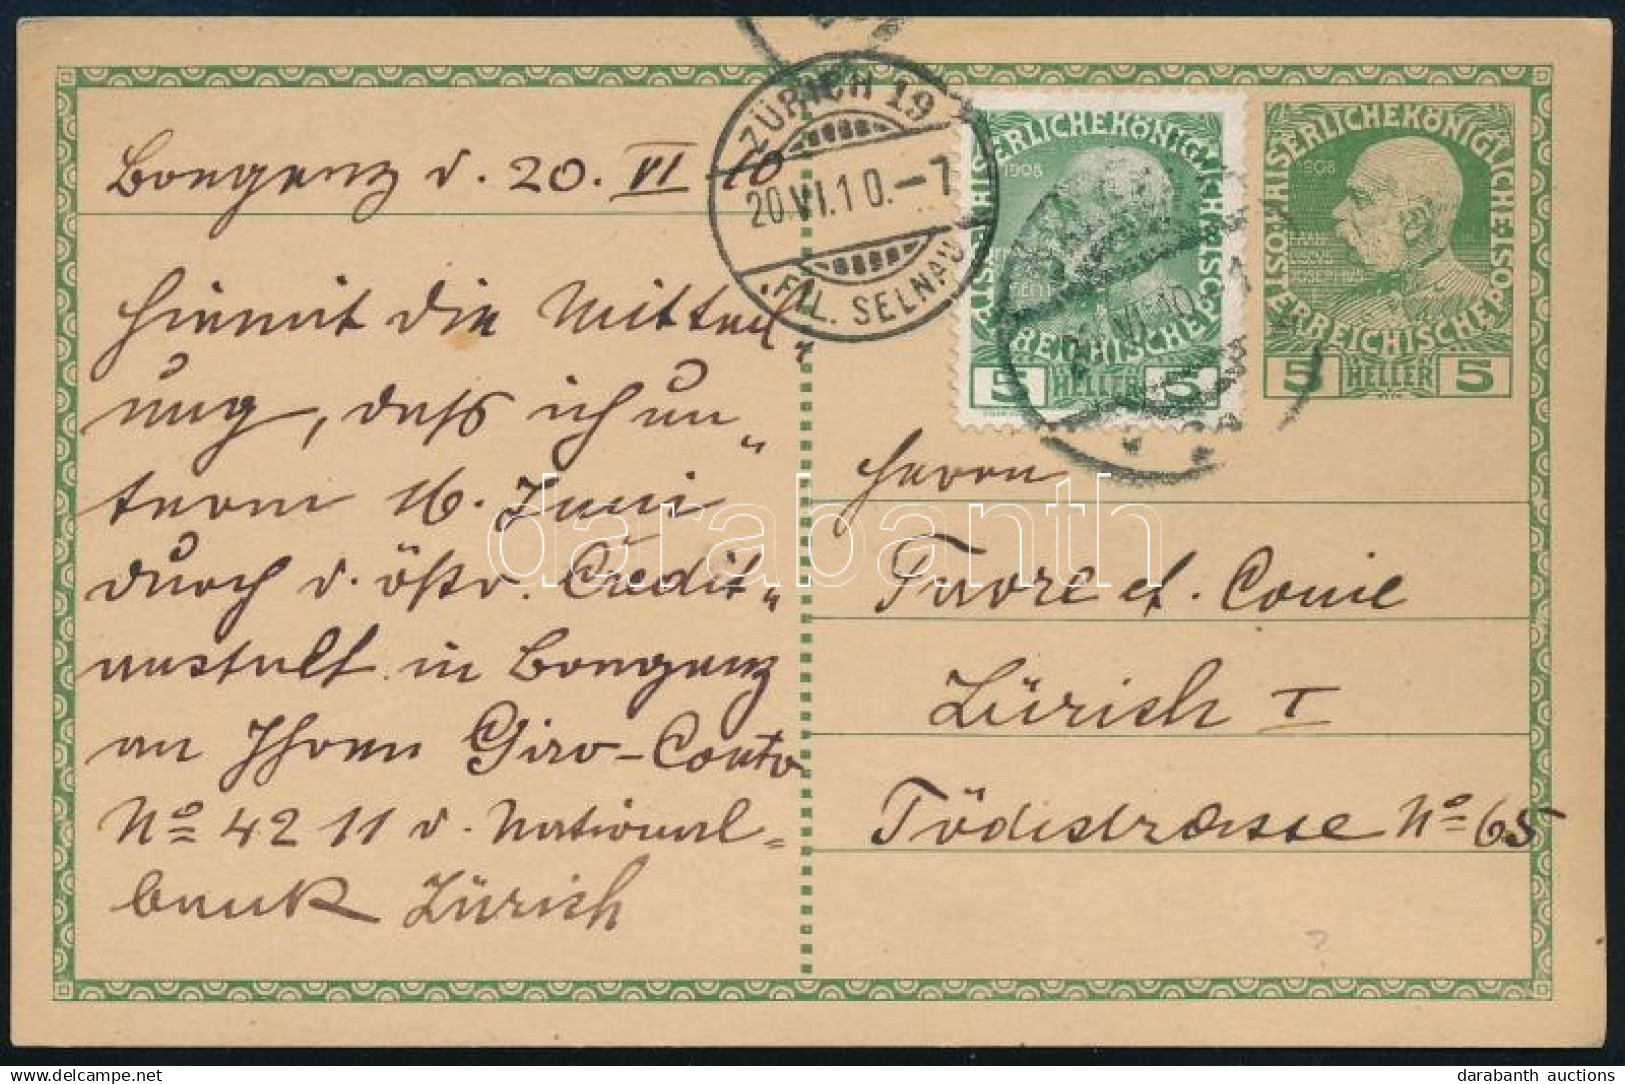 Bregenz d. 20. VI 10
Hiemit die Mitteil„
ung, daß ich un„
term 16. Juni
durch d. östr. Credit„
anstalt in Bregenz
an Ihren Giro-Conto
No 42 11 d. National=
bank Zürich
ZÜRICH 19
20.VI.10.–7
FIL. SELNAU
KAISERLICHEKÖNIGLICHE
ÖSTERREICHISCHEPOST
1908
5 HELLER 5
20.VI.10
KAISERLICHEKÖNIGLICHE
ÖSTERREICHISCHEPOST
1908
FRANCISCVS
JOSEPH I
5 HELLER 5
Herrn
Favre et. Comie
Zürich I
Tödistrasse No 65
darabanth
darabanth auctions